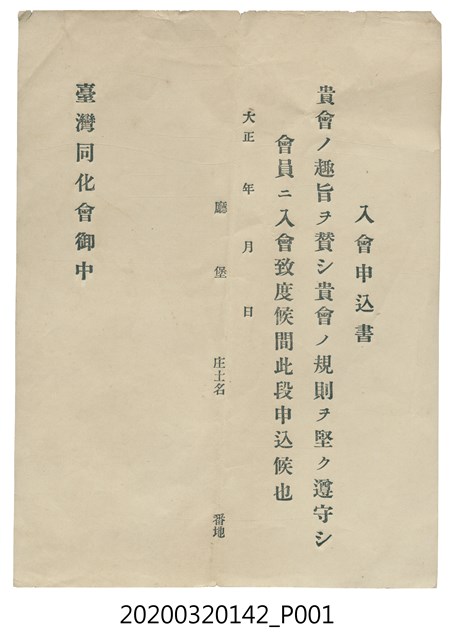 入會申込書
貴會ノ趣旨ヲ賛シ貴會ノ規則ヲ堅ク遵守シ
會員ニ入會致度候間此段申込候也
大正 年 月 日
廳 堡 庄土名 番地
臺灣同化會御中
20200320142_P001